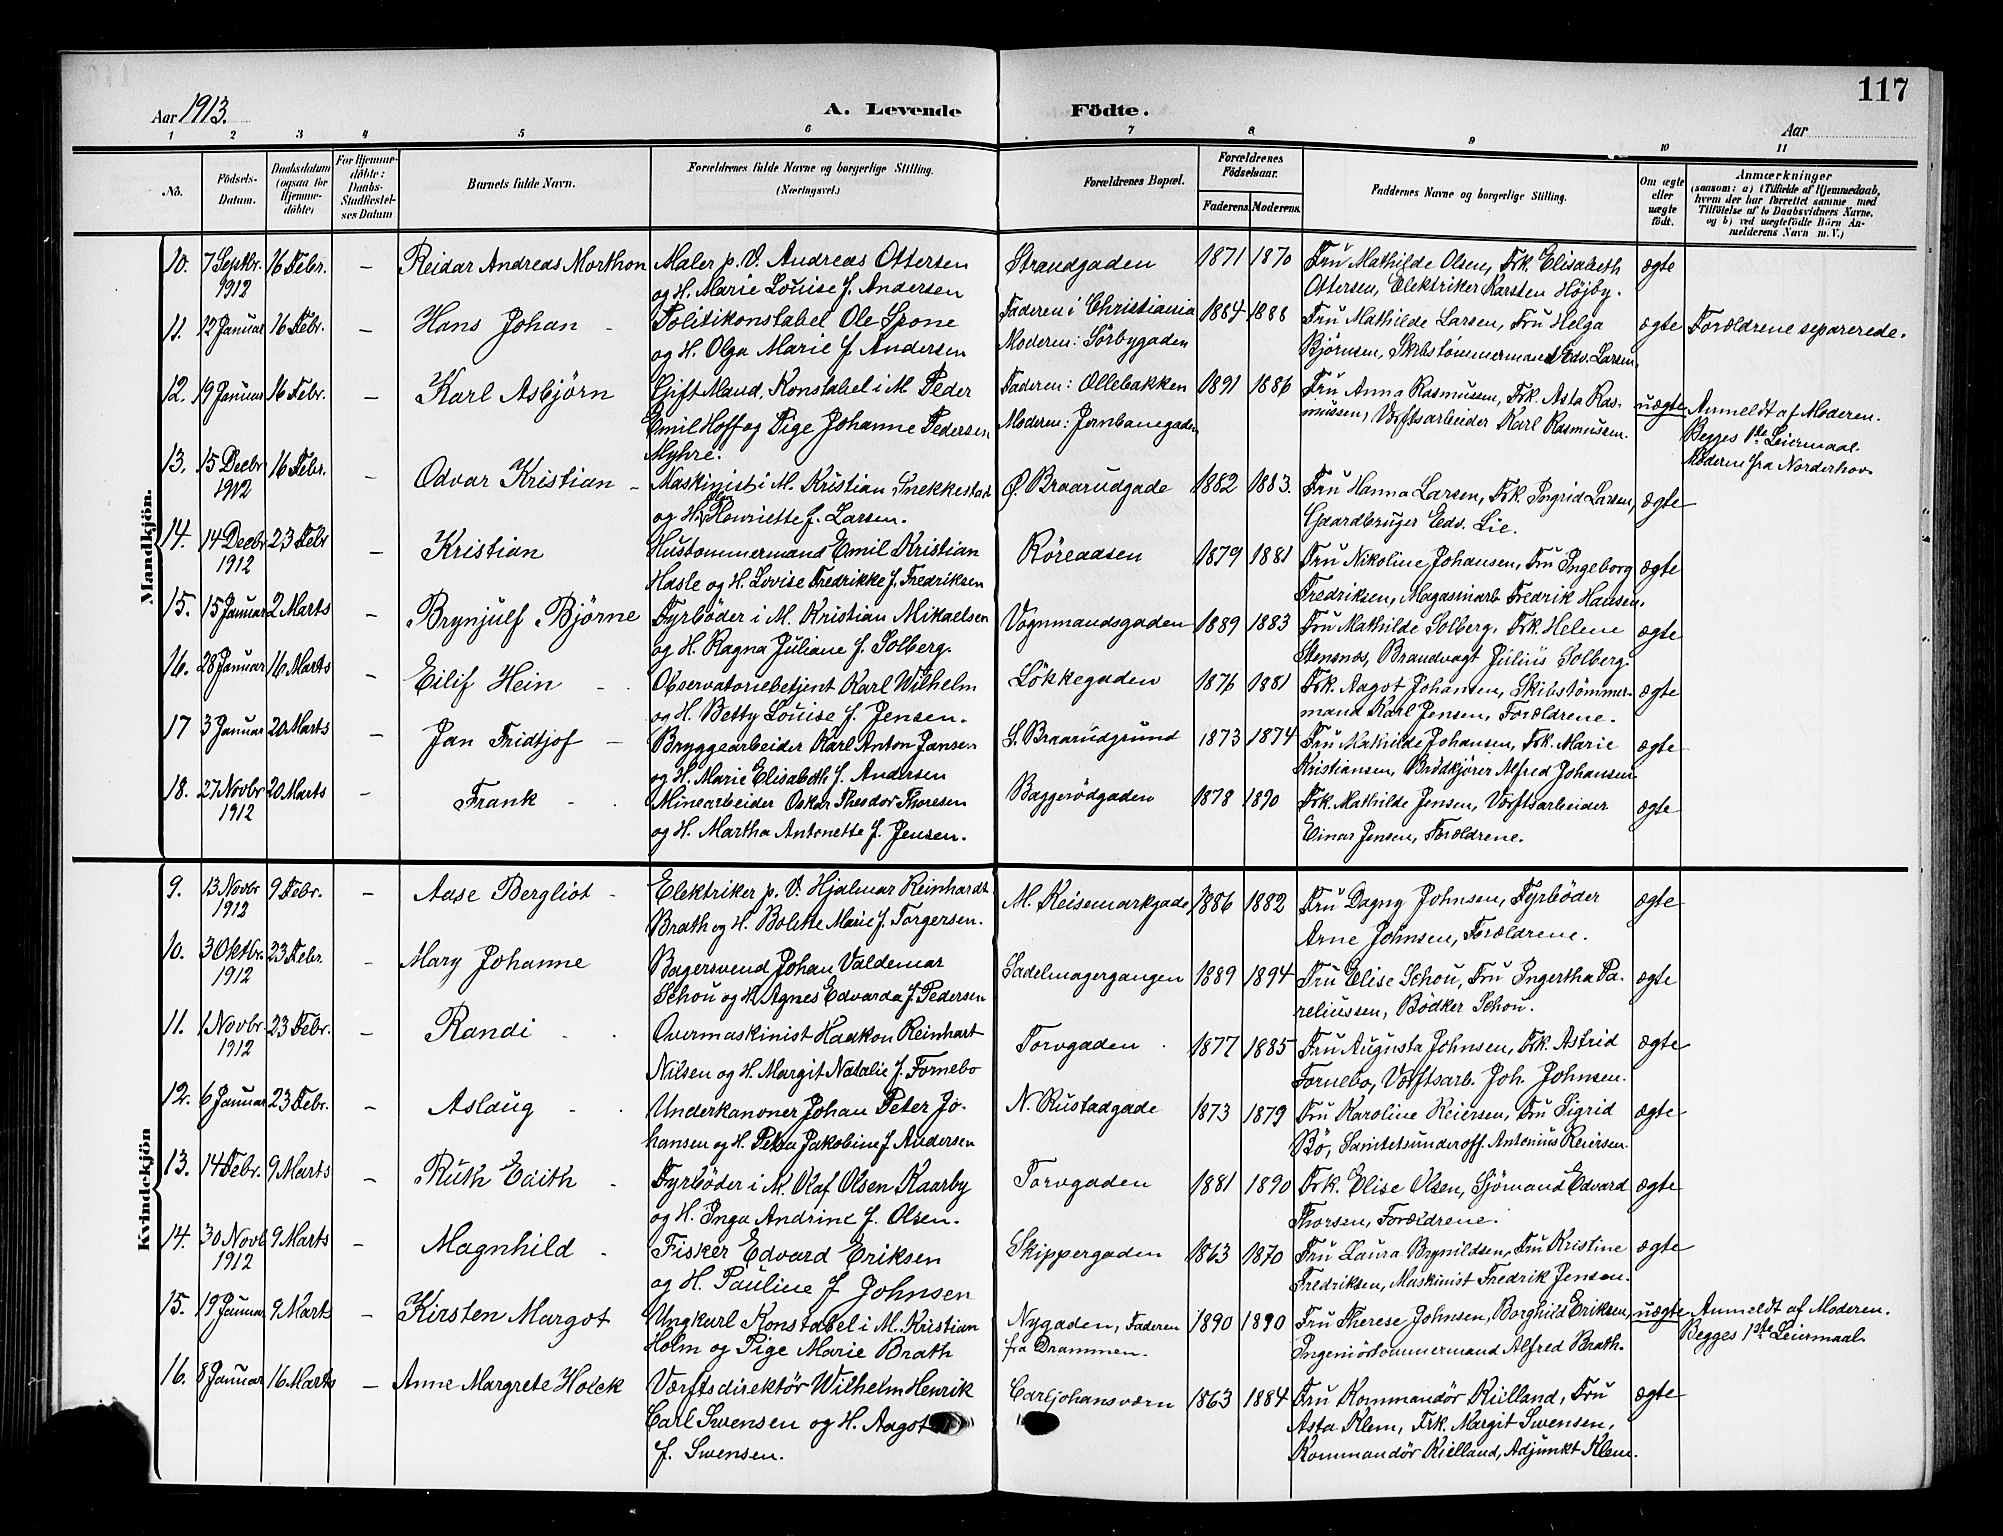 117
Aar 1913. A. Levende Födte. Aar
1 2 3 4 5 6 7 8 9 10 11
No. Födsels-Datum. Daabsdatum (ogsaa for Hjemme-döbte) For Hjemme-döbte: Daabs-Stadfæstel-ses Datum Barnets fulde Navn. Forældrenes fulde Navne og borgerlige Stilling. (Næringsvei.) Forældrenes Bopæl. Forældrenes Födselsaar. Faderens. Moderens. Faddernes Navne og borgerlige Stilling. Om ægte eller uægte födt. Anmærkninger (saasom: a) i Tilfælde af Hjemmedaab, hvem der har forrettet samme med Tilföielse af to Daabsvidners Navne, og b) ved uægtefödte Börn An-melderens Navn m. V.)
Mandkjön.
10. 7 Septbr. 16 Febr. — Reidar Andreas Morthon Maler p. V. Andreas Ottersen Strandgaden 1871 1870 Fru Mathilde Olsen, Frk. Elisabeth ægte
1912 og H. Marie Louise f. Andersen Ottersen, Elektriker Karsten Højby.
11. 12 Januar 16 Febr. — Hans Johan Politikonstabel Ole Spone Faderen i Christiania 1884 1888 Fru Mathilde Larsen, Fru Helga ægte Forældrene separerede.
og H. Olga Marie f. Andersen Moderen: Sörbygaden Bjørnsen, Skibstømmermand Edv. Larsen
12. 19 Januar 16 Febr. — Karl Asbjörn Gift Mand, Konstabel i M. Peder Faderen: Ollebakken 1891 1886 Fru Anna Rasmussen, Frk. Asta Ras- uægte Anmeldt af Moderen.
Emil Hoff og Pige Johanne Pedersen Moderen: Jernbanegaden mussen, Værftsarbeider Karl Rasmussen. Begges 1ste Leiermaal.
Myhre. Moderen fra Norderhov
13. 15 Decbr 16 Febr. — Odvar Kristian Maskinist i M. Kristian Snekkestad Ø. Braarudgade 1882 1883. Fru Hanna Larsen, Frk. Ingrid Larsen, ægte
1912 og H. Olga Henriette f. Larsen. Gaardbruger Edv. Lie.
14. 14 Decbr 23 Febr — Kristian Hustömmermand Emil Kristian Röreaasen 1879 1881 Fru Nikoline Johansen, Fru Ingeborg ægte
1912 Hasle og H. Lovise Fredrikke f. Fredriksen Fredriksen, Magasinarb. Fredrik Hansen.
15. 15 Januar 2 Marts — Brynjulf Bjørne Fyrbøder i M. Kristian Mikaelsen Vognmandsgaden 1889 1883 Fru Mathilde Solberg, Frk. Helene ægte
og H. Ragna Juliane f. Solberg. Stensnæs, Brandvagt Julius Solberg.
16. 28 Januar 16 Marts — Eilif Hein Observatoriebetjent Karl Wilhelm Lökkegaden 1876 1881 Frk. Aagot Johansen, Skibstømmer- ægte
og H. Betty Louise f. Jensen. mand Karl Jensen, Forældrene.
17 3 Januar 20 Marts — Jan Fridtjof Bryggearbeider Karl Anton Jansen S. Braarudgrund 1873 1874 Fru Mathilde Johansen, Frk. Marie ægte
og H. Marie Elisabeth f. Andersen Kristiansen, Brødkjører Alfred Johansen
18. 27 Novbr 20 Marts — Frank Minearbeider Oskar Theodor Thoresen Baggerødgaden 1878 1890 Frk. Mathilde Jensen, Værftsarbeider ægte
1912 og H. Martha Antonette f. Jensen. Einar Jensen, Forældrene.
Kvindekjön
9. 13 Novbr 9 Febr. — Aase Bergliot Elektriker p. V. Hjalmar Reinhardt M. Keisemarkgade 1886 1882 Fru Dagny Johnsen, Fyrbøder ægte
1912 Brath og H. Bolette Marie f. Torgersen. Arne Johnsen, Forældrene.
10. 3 Oktbr. 23 Febr. — Mary Johanne Bagersvend Johan Valdemar Sadelmagergangen 1889 1894 Fru Elise Schou, Fru Ingertha Pa- ægte
1912 Schou og H. Agnes Edvarda f. Pedersen reliussen, Bødker Schou.
11. 1 Novbr. 23 Febr. — Randi Overmaskinist Haakon Reinhart Torvgaden 1877 1885 Fru Augusta Johnsen, Frk. Astrid ægte
1912 Nilsen og H. Margit Natalie f. Fornebo Fornebo, Værftsarb. Joh. Johnsen.
12. 6 Januar 23 Febr. — Aslaug Underkanoner Johan Peter Jo- N. Rustadgade 1873 1879 Fru Karoline Reiersen, Fru Sigrid ægte
hansen og H. Petra Jakobine f. Andersen Bö, Sanitetsunderoff. Antonius Reiersen.
13. 14 Febr. 9 Marts — Ruth Edith Fyrbøder i M. Olaf Olsen Kaarby Torvgaden 1881 1890 Frk. Elise Olsen, Sjömand Edvard ægte
og H. Inga Andrine f. Olsen. Thorsen, Forældrene.
14. 30 Novb. 9 Marts — Magnhild Fisker Edvard Eriksen Skippergaden 1863 1870 Fru Laura Brynildsen, Fru Kristine ægte
1912 og H. Pauline f. Johnsen Fredriksen, Maskinist Fredrik Jensen.
15. 19 Januar 9 Marts — Kirsten Margot Ungkarl Konstabel i M. Kristian Nygaden, Faderen 1890 1890 Fru Therese Johnsen, Borghild Eriksen, uægte Anmeldt af Moderen.
Holm og Pige Marie Brath fra Drammen. Ingeniörtömmermand Alfred Brath. Begges 1ste Leiermaal.
16. 8 Januar 16 Marts — Anne Margrete Holck Værftsdirektör Wilhelm Henrik Carljohansværn 1863 1884 Fru Kommandör Kielland, Fru ægte
Carl Swensen og H. Aagot Asta Klem, Frk. Margit Swensen,
f. Swensen. Kommandör Kielland, Adjunkt Klem.